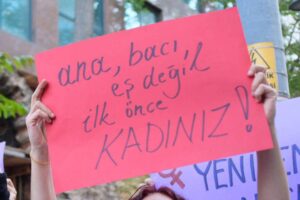 ana, bacı,
eş değil
ilk önce
KADINIZ!
YENİ